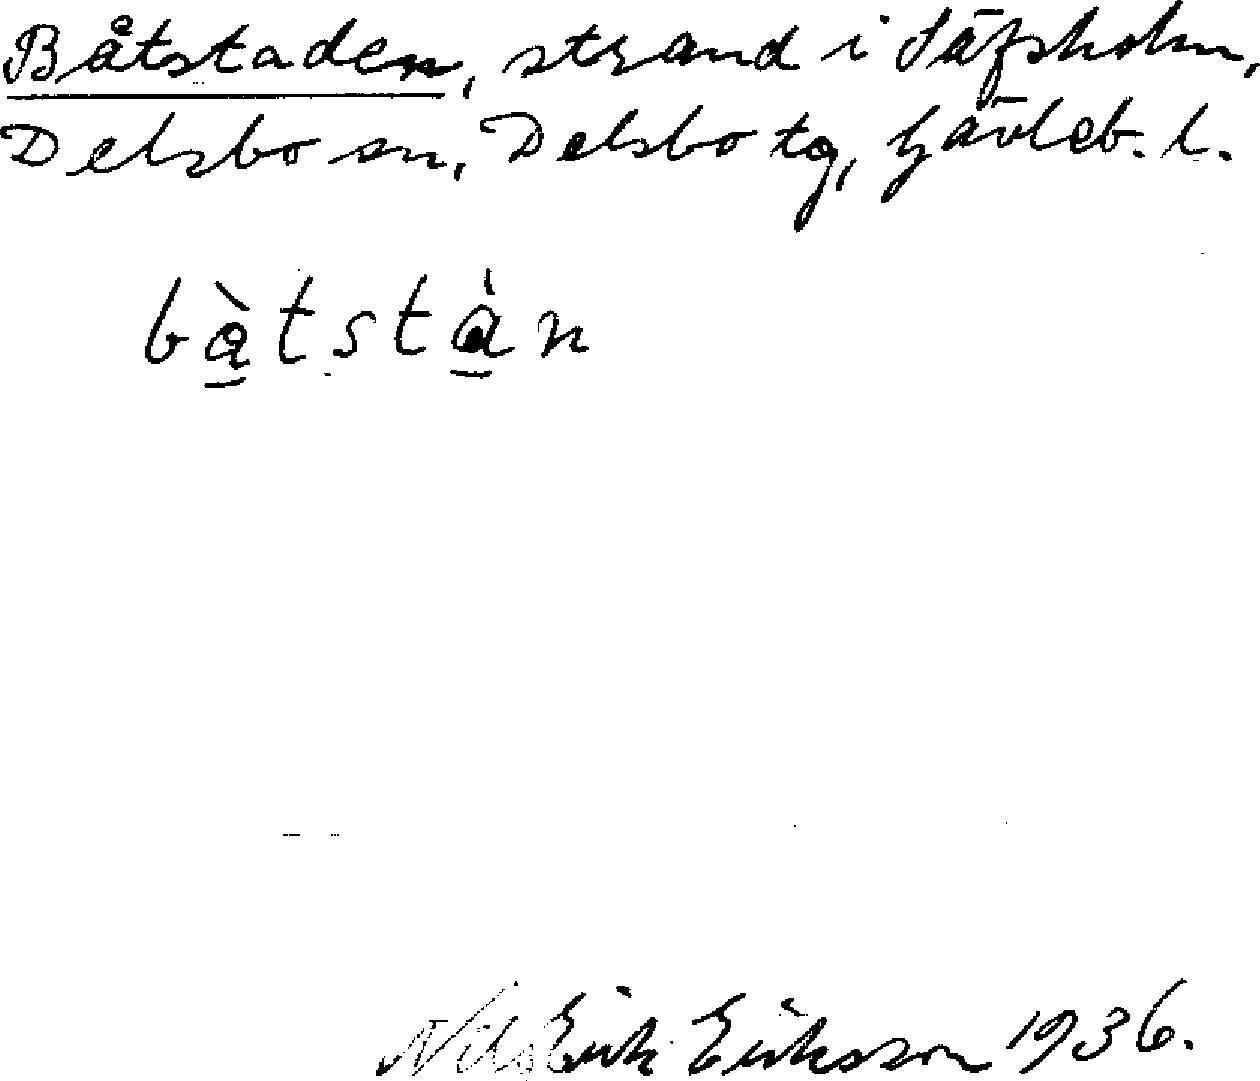 Båtstaden, strand i Säfsholm,
Delsbo sn, Delsbo tg, Gävleb. l.
bàtstàn
Nils Erik Eriksson 1936.